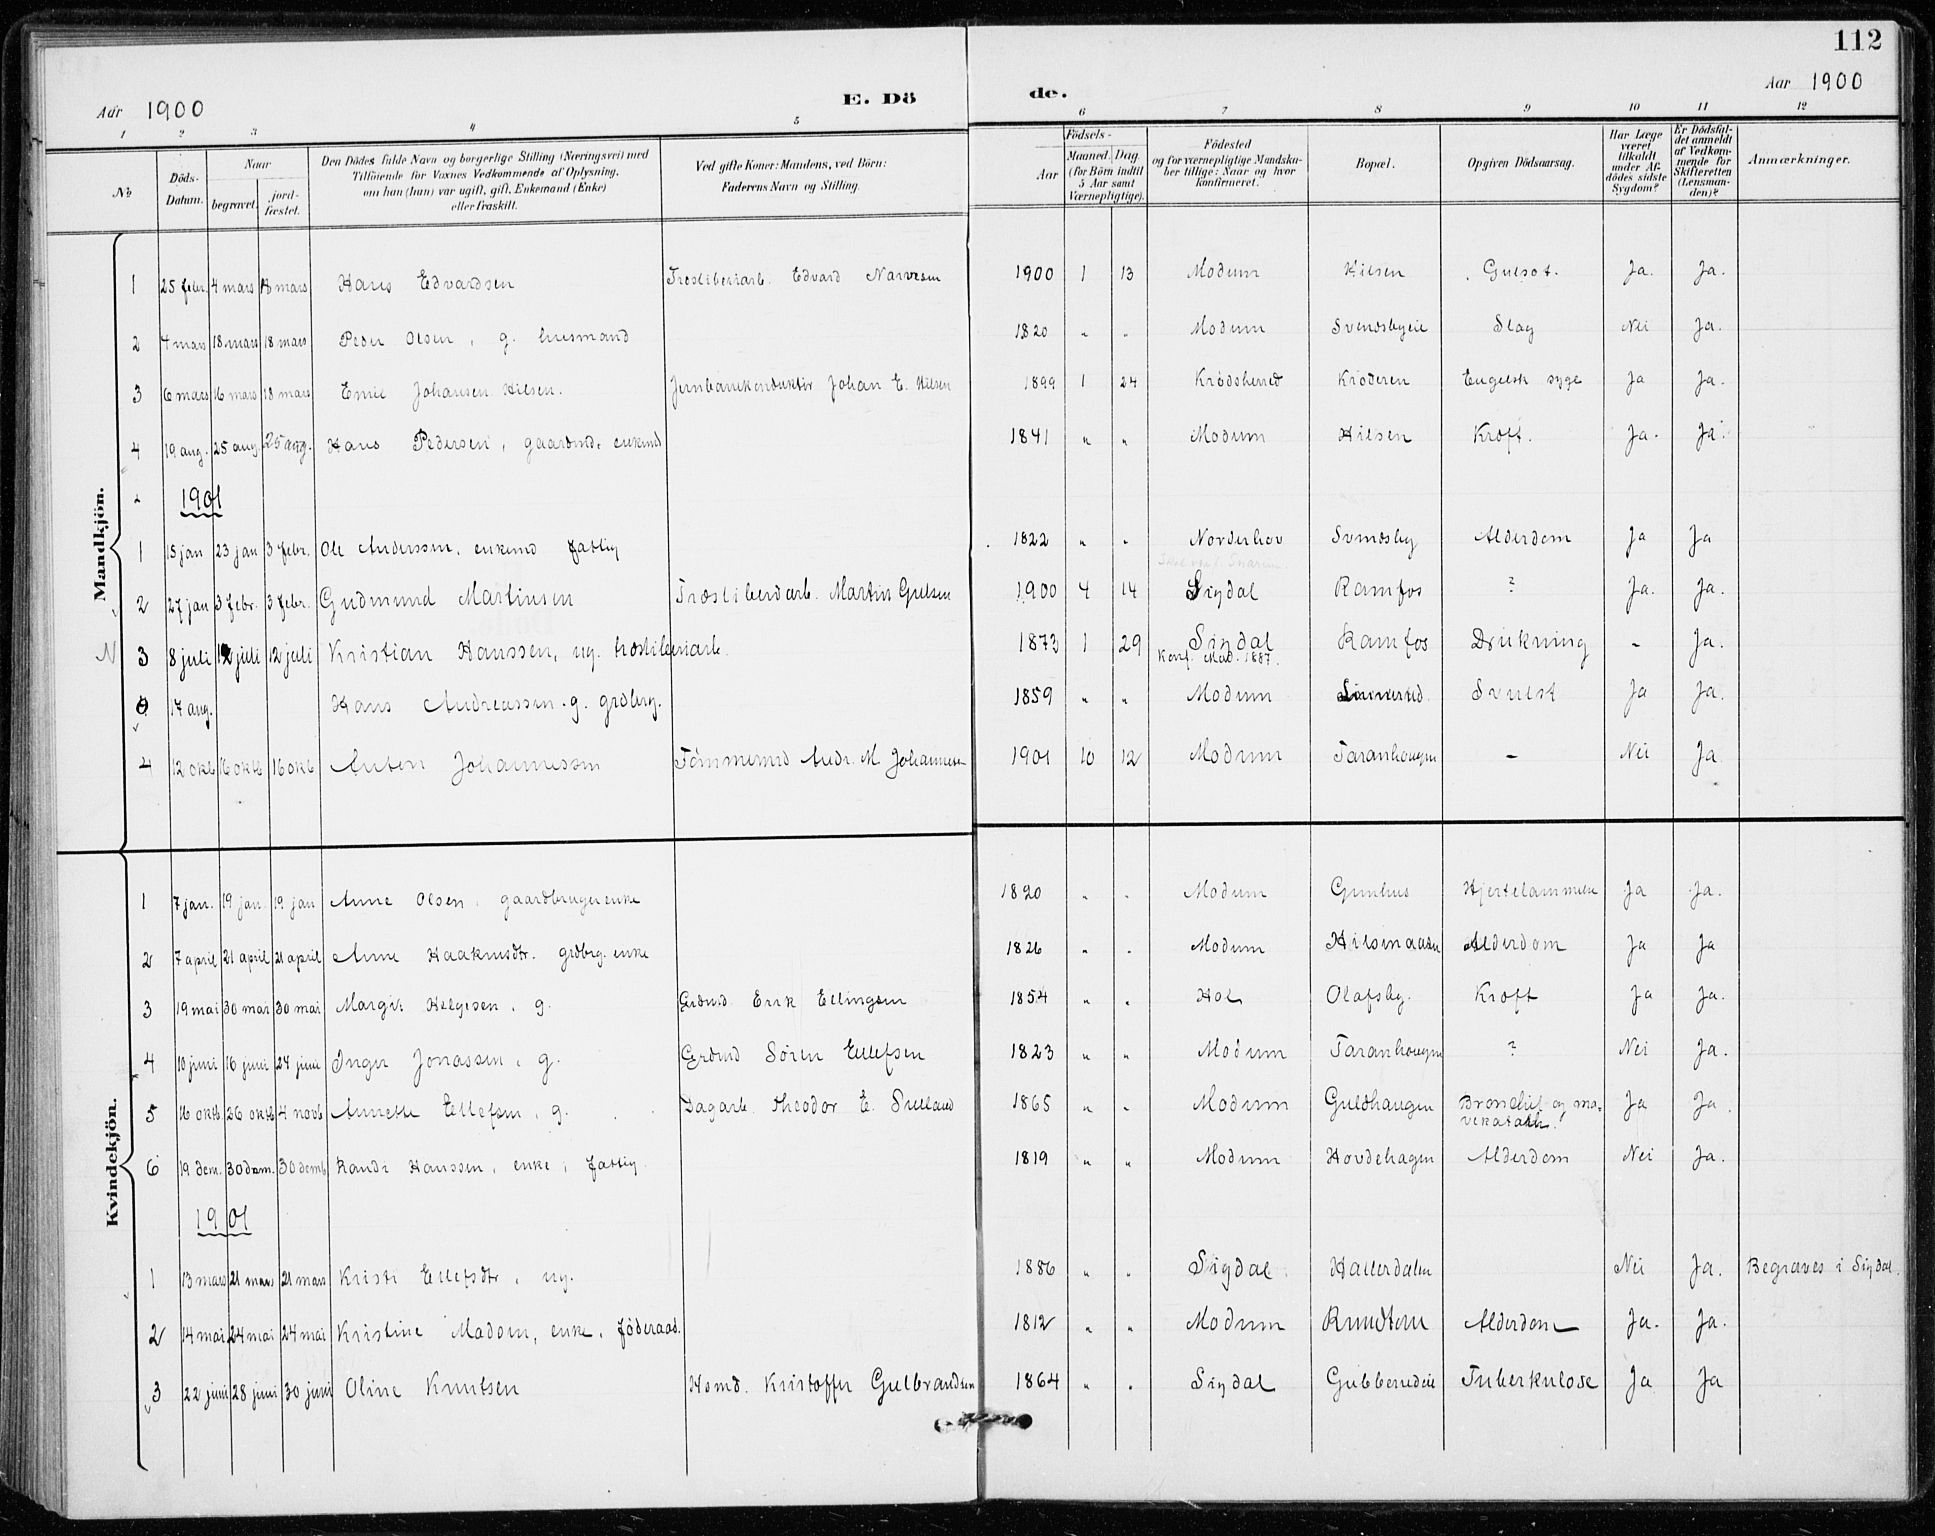 112
Aar 1900 E. Dö de. Aar 1900
1 2 3 4 5 6 7 8 9 10 11 12
№ Döds-Datum. Naar begravet. jord-fæstet. Den Dödes fulde Navn og borgerlige Stilling (Næringsvei) med Tilföiende for Voxnes Vedkommende af Oplysning, om han (hun) var ugift, gift, Enkemand (Enke) eller fraskilt. Ved gifte Koner: Mandens, ved Börn: Faderens Navn og Stilling. Födsels- Aar Maaned. Dag. (for Börn indtil 5 Aar samt Værnepligtige). Födested og for værnepligtige Mandskaber tillige: Naar og hvor konfirmeret. Bopæl. Opgiven Dödsaarsag. Har Læge været tilkaldt under Afdödes sidste Sygdom? Er Dödsfaldet anmeldt af Vedkommende for Skifteretten (Lensmanden)? Anmærkninger.
Mandkjön.
1 25 febr. 4 mars 18 mars Hans Edvardsen Træsliberiarb. Edvard Narvesen 1900 1 13 Modum Hilsen Gulsot. Ja. Ja.
2 4 mars 18 mars 18 mars Peder Olsen, g. husmand 1820 " " Modum Svendsbyeie Slag Nei Ja.
3 6 mars 16 mars 18 mars Emil Johansen Hilsen. Jernbanekonduktör Johan E. Hilsen 1899 1 24 Krödsherred Kröderen Engelsk syge Ja Ja.
4 19 aug. 25 aug. 25 aug. Hans Pedersen, gaardmd. enkemd 1841 " " Modum Hilsen Kræft. Ja. Ja.
1901
1 15 jan 23 jan 3 febr. Ole Anderssen, enkemd fattig 1822 " " Norderhov Svendsby Alderdom Ja Ja
2 27 jan 3 febr. 3 febr. Gudmund Martinsen Træsliberiarb. Martin Gulsen 1900 4 14 Sigdal Ramfos ? Ja. Ja.
N 3 8 juli 12 juli 12 juli Kristian Hanssen, ug. træsliberiarb. 1873 1 29 Sigdal Ramfos Drukning - Ja.
Konf. Mod. 1887.
17 aug. Hans Andreassen. g. grdbrg. 1859 " " Modum Svulst Ja Ja.
4 12 oktb 16 oktb 16 oktb Anton Johannessen Tömmermd Andr. M. Johannesen 1901 10 12 Modum Taranhougen - Nei Ja
Kvindekjön.
1 7 jan. 19 jan. 19 jan Anne Olsen, gaardbrugerenke 1820 " " Modum Gunhus Hjertelammelse Ja Ja.
2 7 april 21 april 21 april Anne Haakensdtr. grdbrg. enke 1826 " " Modum Hilsenaasen Alderdom Ja Ja
3 19 mai 30 mai 30 mai Margit Helgesen, g. Grdmd. Erik Ellingsen 1854 " " Hol Olafsby. Kræft Ja Ja.
4 10 juni 16 juni 24 juni Inger Jonassen, g. Grdmd Sören Ellefsen 1823 " " Modum Taranhougen ? Nei Ja.
5 16 oktb 26 oktb 4 novb Annette Ellefsen, g. Dagarb. Theodor E. Sulland 1865 " " Modum Guldhaugen Bronchit og ma-
vekatarh. Ja Ja.
6 19 dem. 30 dem. 30 demb Randi Hanssen, enke, fattig. 1819 " " Modum Hovdehagen Alderdom Nei Ja.
1901
1 13 mars 21 mars 21 mars Kristi Ellefsdtr, ug. 1886 " " Sigdal Hallerdalen Nei Ja. Begraves i Sigdal.
2 14 mai 24 mai 24 mai Kristine Madsen, enke, föderaad. 1812 " " Modum Alderdom Ja. Ja.
3 22 juni 28 juni 30 juni Oline Knutsen Hsmd. Kristoffer Gulbrandsen 1864 " " Sigdal Gubberudeie Tuberkulose Ja Ja